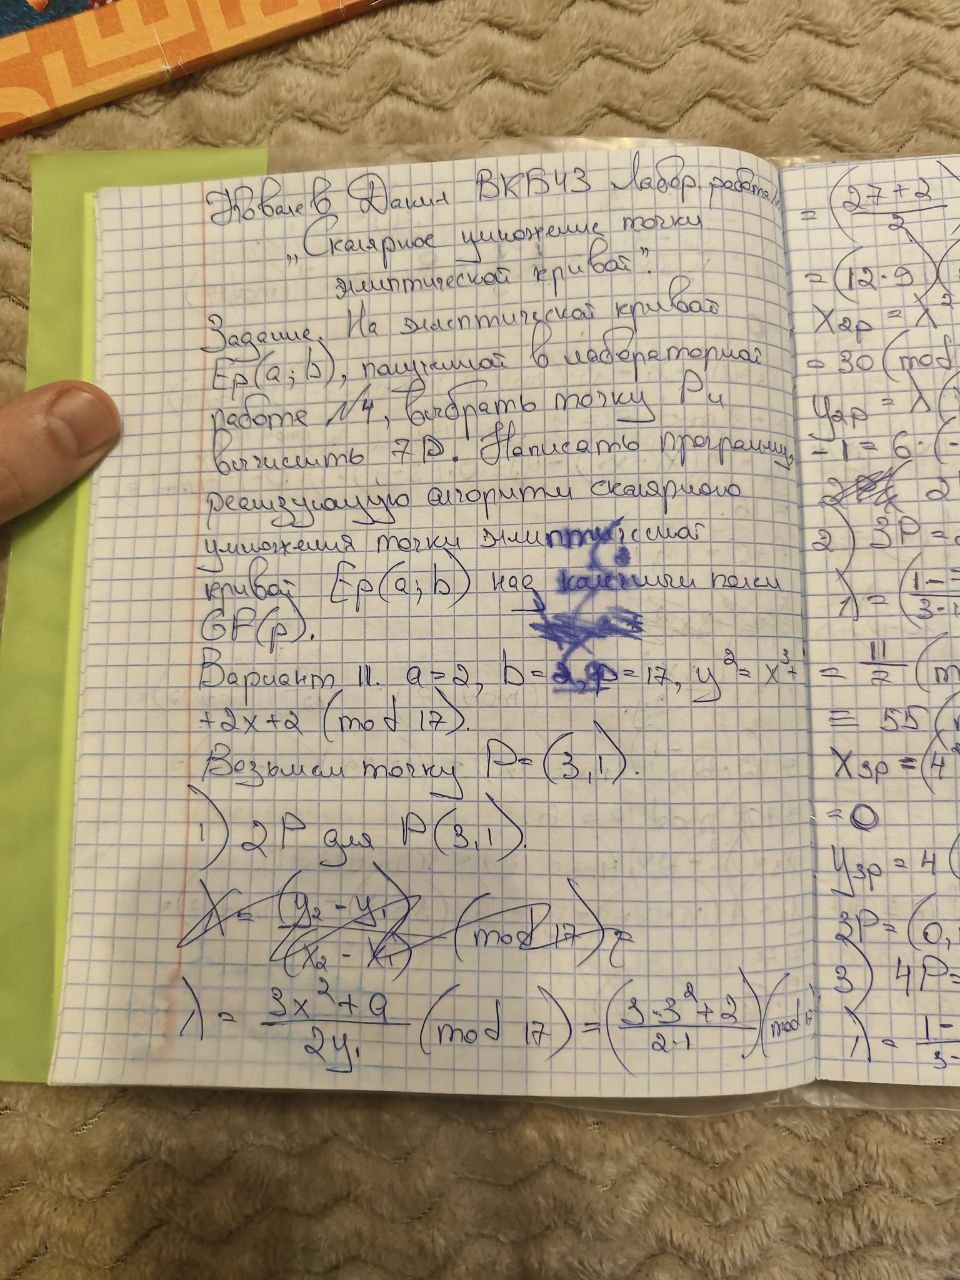 Ковалев Данил ВКБ43 Лабор. работа
„Скалярное умножение точки
элиптической кривой".
Задание. На элептической кривой
Ep(a;b), полученной в лабораторной
работе №4, выбрать точку P и
вычислить 7P. Написать программу,
реализующую алгоритм скалярного
умножения точки элиптической
кривой Ep(a;b) над конечным полем
GF(p).
Вариант 11. a=2, b=2, p=17, y²=x³+
+2x+2 (mod 17).
Возьмем точку P=(3,1).
1) 2P для P(3,1).
λ = (y₂-y₁)/(x₂-x₁) (mod 17) =
λ = (3x²+a)/(2y₁) (mod 17) = ((3·3²+2)/(2·1)) (mod
= ((27+2)/2)
= (12·9)
x2p = x²
= 30 (mod
y2p = λ(
-1 = 6·(-
2
2) 3P=
λ) = (1-
3-
= 11/7 (m
≡ 55 (
x3p = (4²
= 0
y3p = 4(
3P=(0,
3) 4P=
λ) = 1-
3-